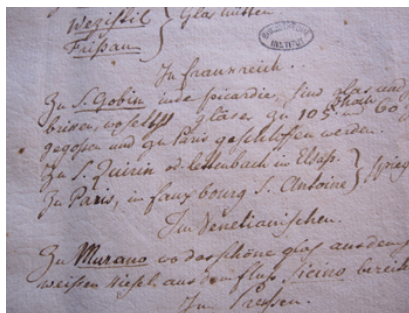 Wezistil
Frisau } Glashütten.
In frankreich.
Zu S. Gobin in de picardie, sind glas und
brisen, woselbst gläser zu 105 hoch und 60
gegossen und zu Paris geschloffen werden.
Zu S. Quirin od. lettenbach in Elsas.
Zu Paris, in fauxbourg S. Antoine }
Im Venetianischen.
Zu Murano wo das schöne glas aus dem
weissen Kiesel aus dem fluss Ticino bereit
In Pressen.